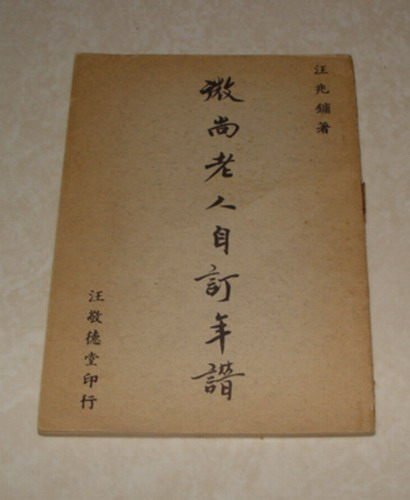 汪兆鏞著
微尚老人自訂年譜
汪敬德堂印行